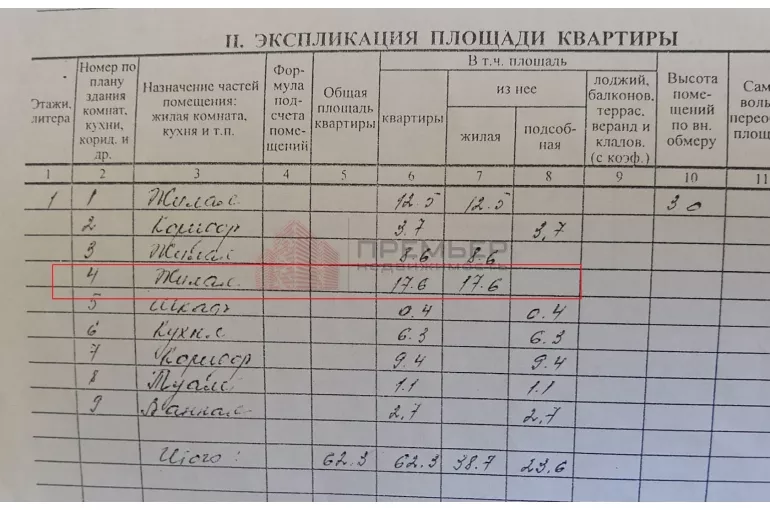 II. ЭКСПЛИКАЦИЯ ПЛОЩАДИ КВАРТИРЫ
Этажи, литера
Номер по плану здания комнат, кухни, корид. и др.
Назначение частей помещения: жилая комната, кухня и т.п.
Фор-мула под-счета поме-щений
Общая площадь квартиры
В т.ч. площадь
квартиры
из нее
жилая
подсоб-ная
лоджий, балконов, террас, веранд и кладов. (с коэф.)
Высота поме-щений по вн. обмеру
Сам воль перео площ
1 2 3 4 5 6 7 8 9 10 11
1 1 Жилая 12.5 12.5 3 0
2 Коридор 3.7 3,7
3 Жилая 8.6 8.6
4 Жилая 17.6 17.6
5 Шкаф 0.4 0.4
6 Кухня 6.3 6.3
7 Коридор 9.4 9.4
8 Туал 1.1 1.1
9 Ванная 2,7 2,7
Итого: 62.3 62.3 38.7 23.6
ПРЕМЬЕР
НЕДВИЖИМОСТЬ